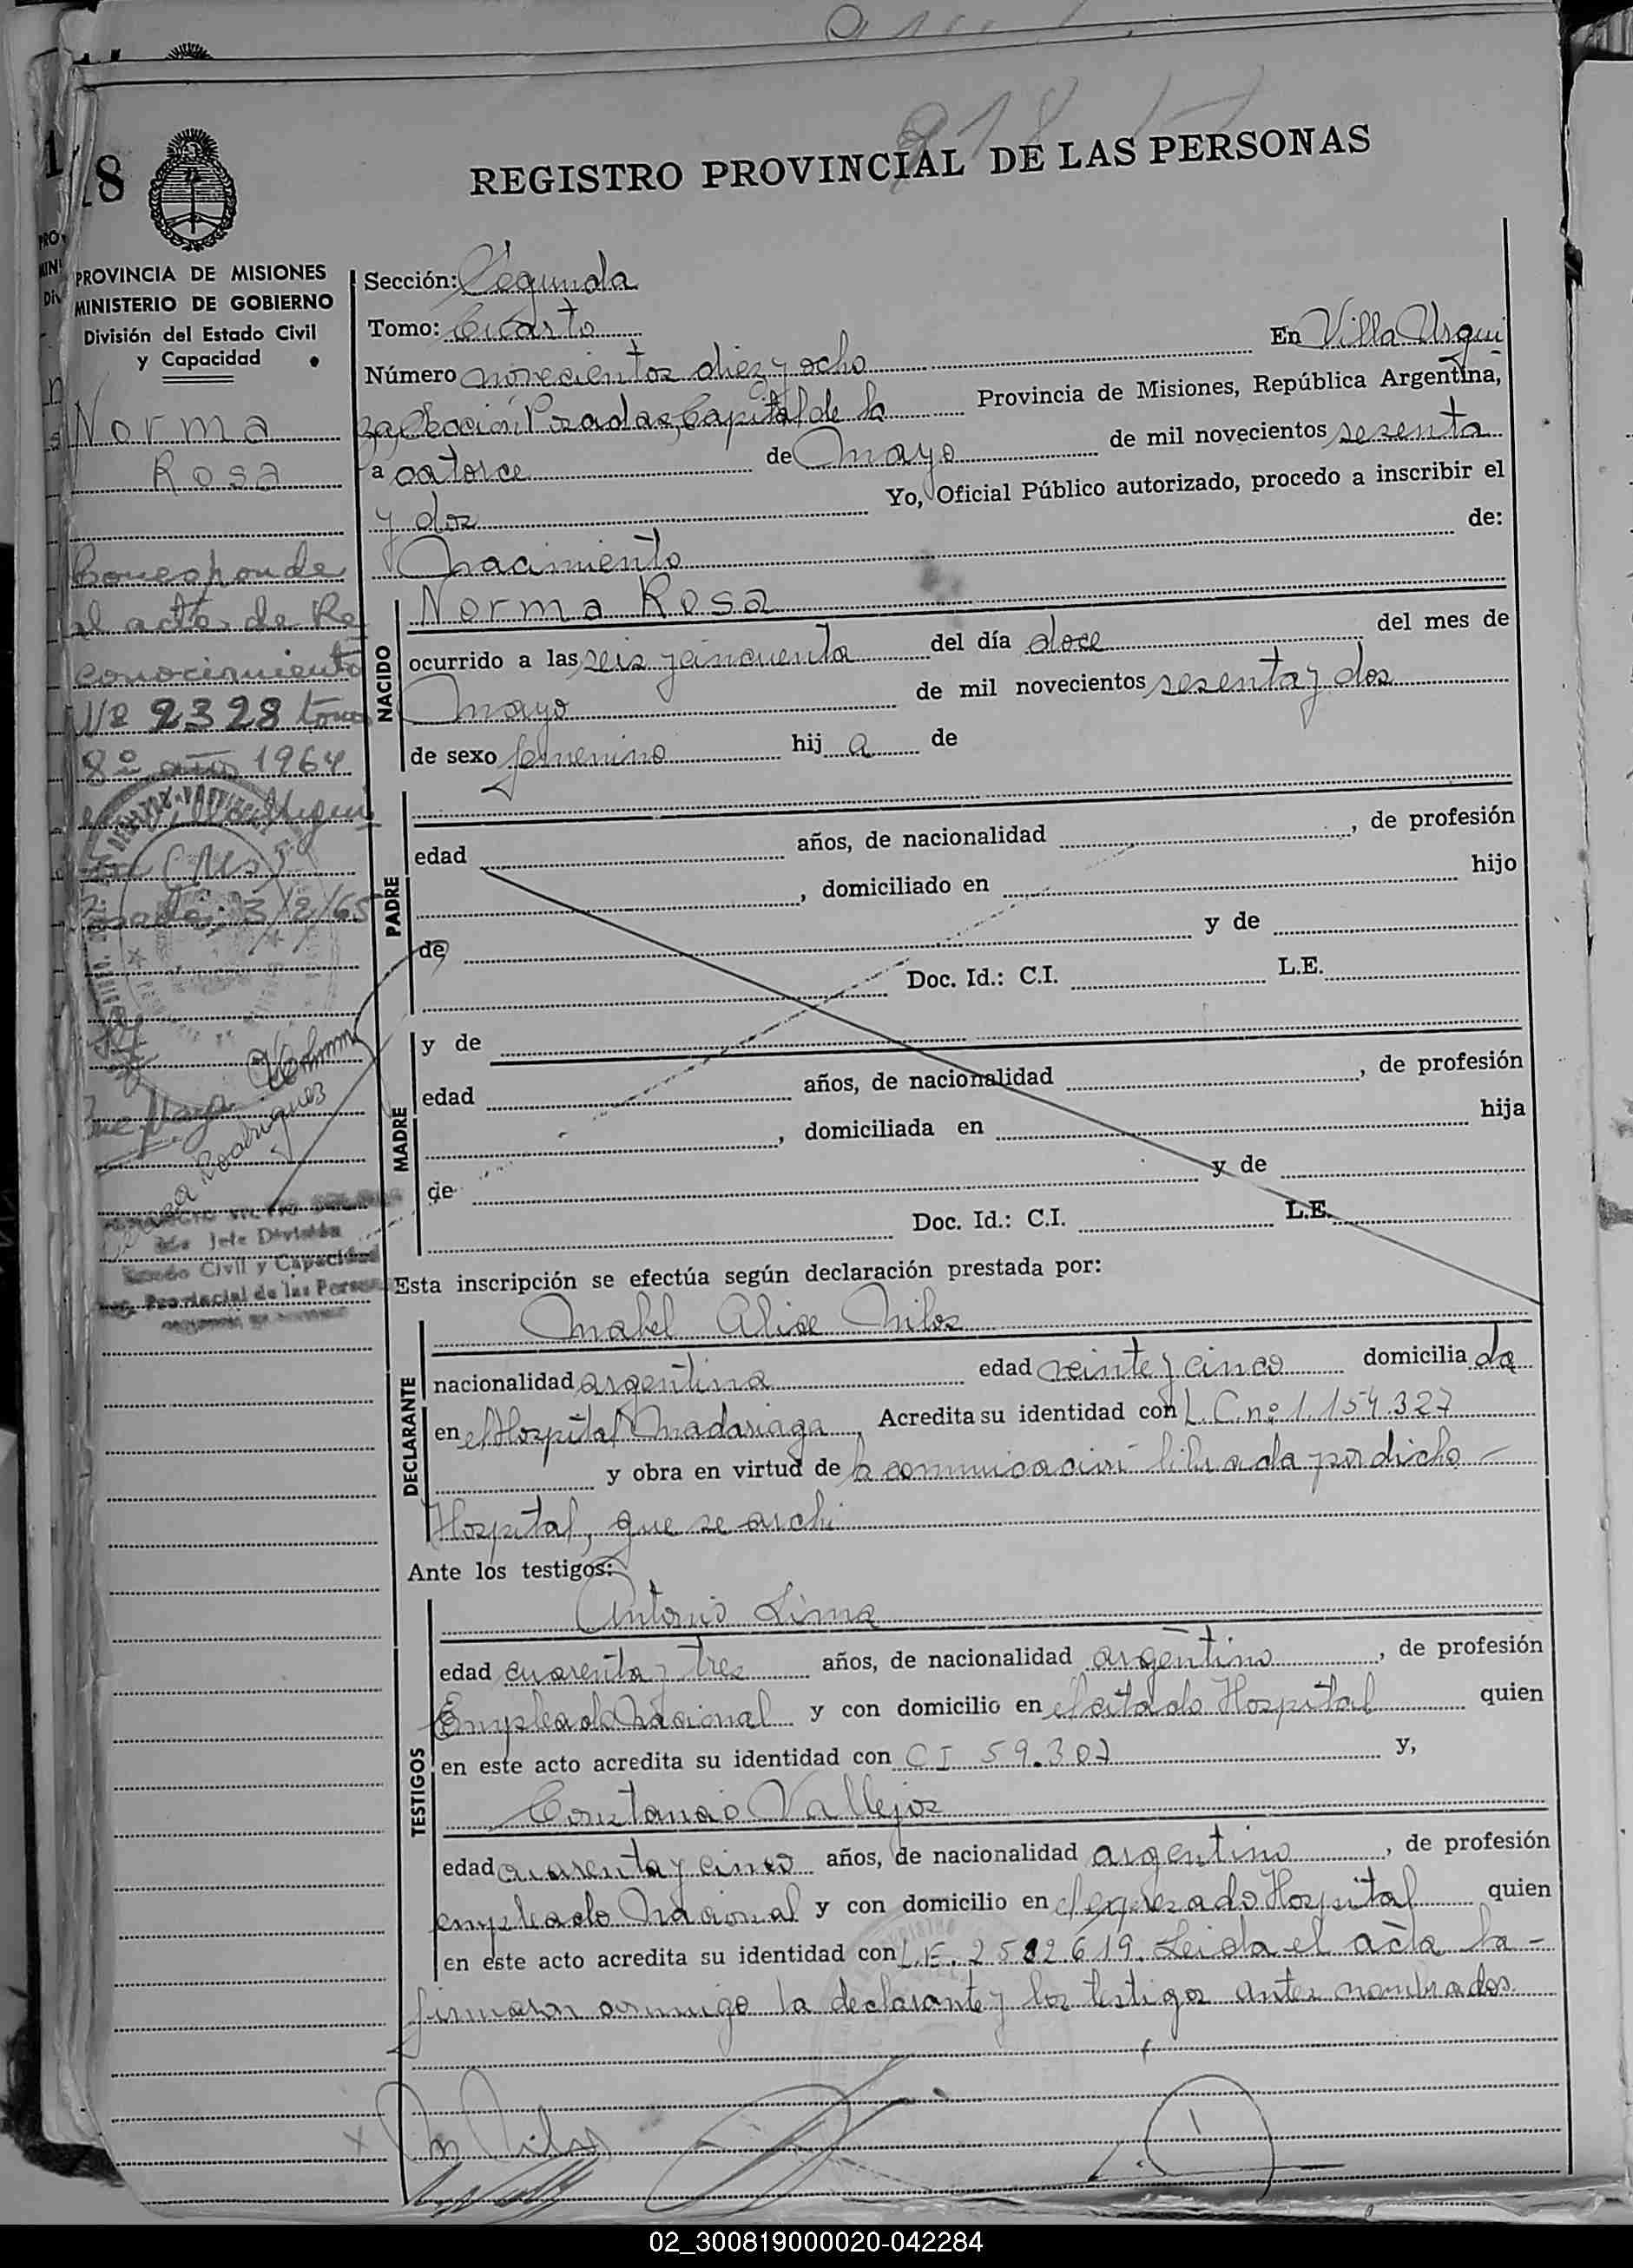 REGISTRO PROVINCIAL DE LAS PERSONAS
18
PROVINCIA DE MISIONES
MINISTERIO DE GOBIERNO
División del Estado Civil
y Capacidad
Norma
Rosa
Corresponde
al acta de Re
conocimiento
Nº 2328 tomo
8º año 1964
(Ms)
Posadas 3/2/65
Rodriguez
Jefe División
Estado Civil y Capacidad
Reg. Provincial de las Personas
Sección: Segunda
Tomo: Cuarto
Número novecientos diez y ocho En Villa Urqui
za Sección Posadas, Capital de la Provincia de Misiones, República Argentina,
a catorce de Mayo de mil novecientos sesenta
y dos Yo, Oficial Público autorizado, procedo a inscribir el
Nacimiento de:
NACIDO
Norma Rosa
ocurrido a las seis y cincuenta del día doce del mes de
Mayo de mil novecientos sesenta y dos
de sexo femenino hij a de
PADRE
edad años, de nacionalidad , de profesión
, domiciliado en hijo
de y de
Doc. Id.: C.I. L.E.
MADRE
y de
edad años, de nacionalidad , de profesión
, domiciliada en hija
de y de
Doc. Id.: C.I. L.E.
Esta inscripción se efectúa según declaración prestada por:
DECLARANTE
Mabel Alice Milos
nacionalidad argentina edad veinte y cinco domicilia da
en el Hospital Madariaga, Acredita su identidad con L.C. nº 1.154.327
y obra en virtud de la comunicación librada por dicho -
Hospital, que se archi
Ante los testigos:
TESTIGOS
Antonio Lima
edad cuarenta y tres años, de nacionalidad argentino , de profesión
Empleado Nacional y con domicilio en el citado Hospital quien
en este acto acredita su identidad con CI 59.307 y,
Constancio Vallejos
edad cuarenta y cinco años, de nacionalidad argentino , de profesión
empleado Nacional y con domicilio en el expresado Hospital quien
en este acto acredita su identidad con L.E. 2582619. Leida el acta la -
firmaron conmigo la declarante y los testigos antes nombrados.
02_300819000020-042284